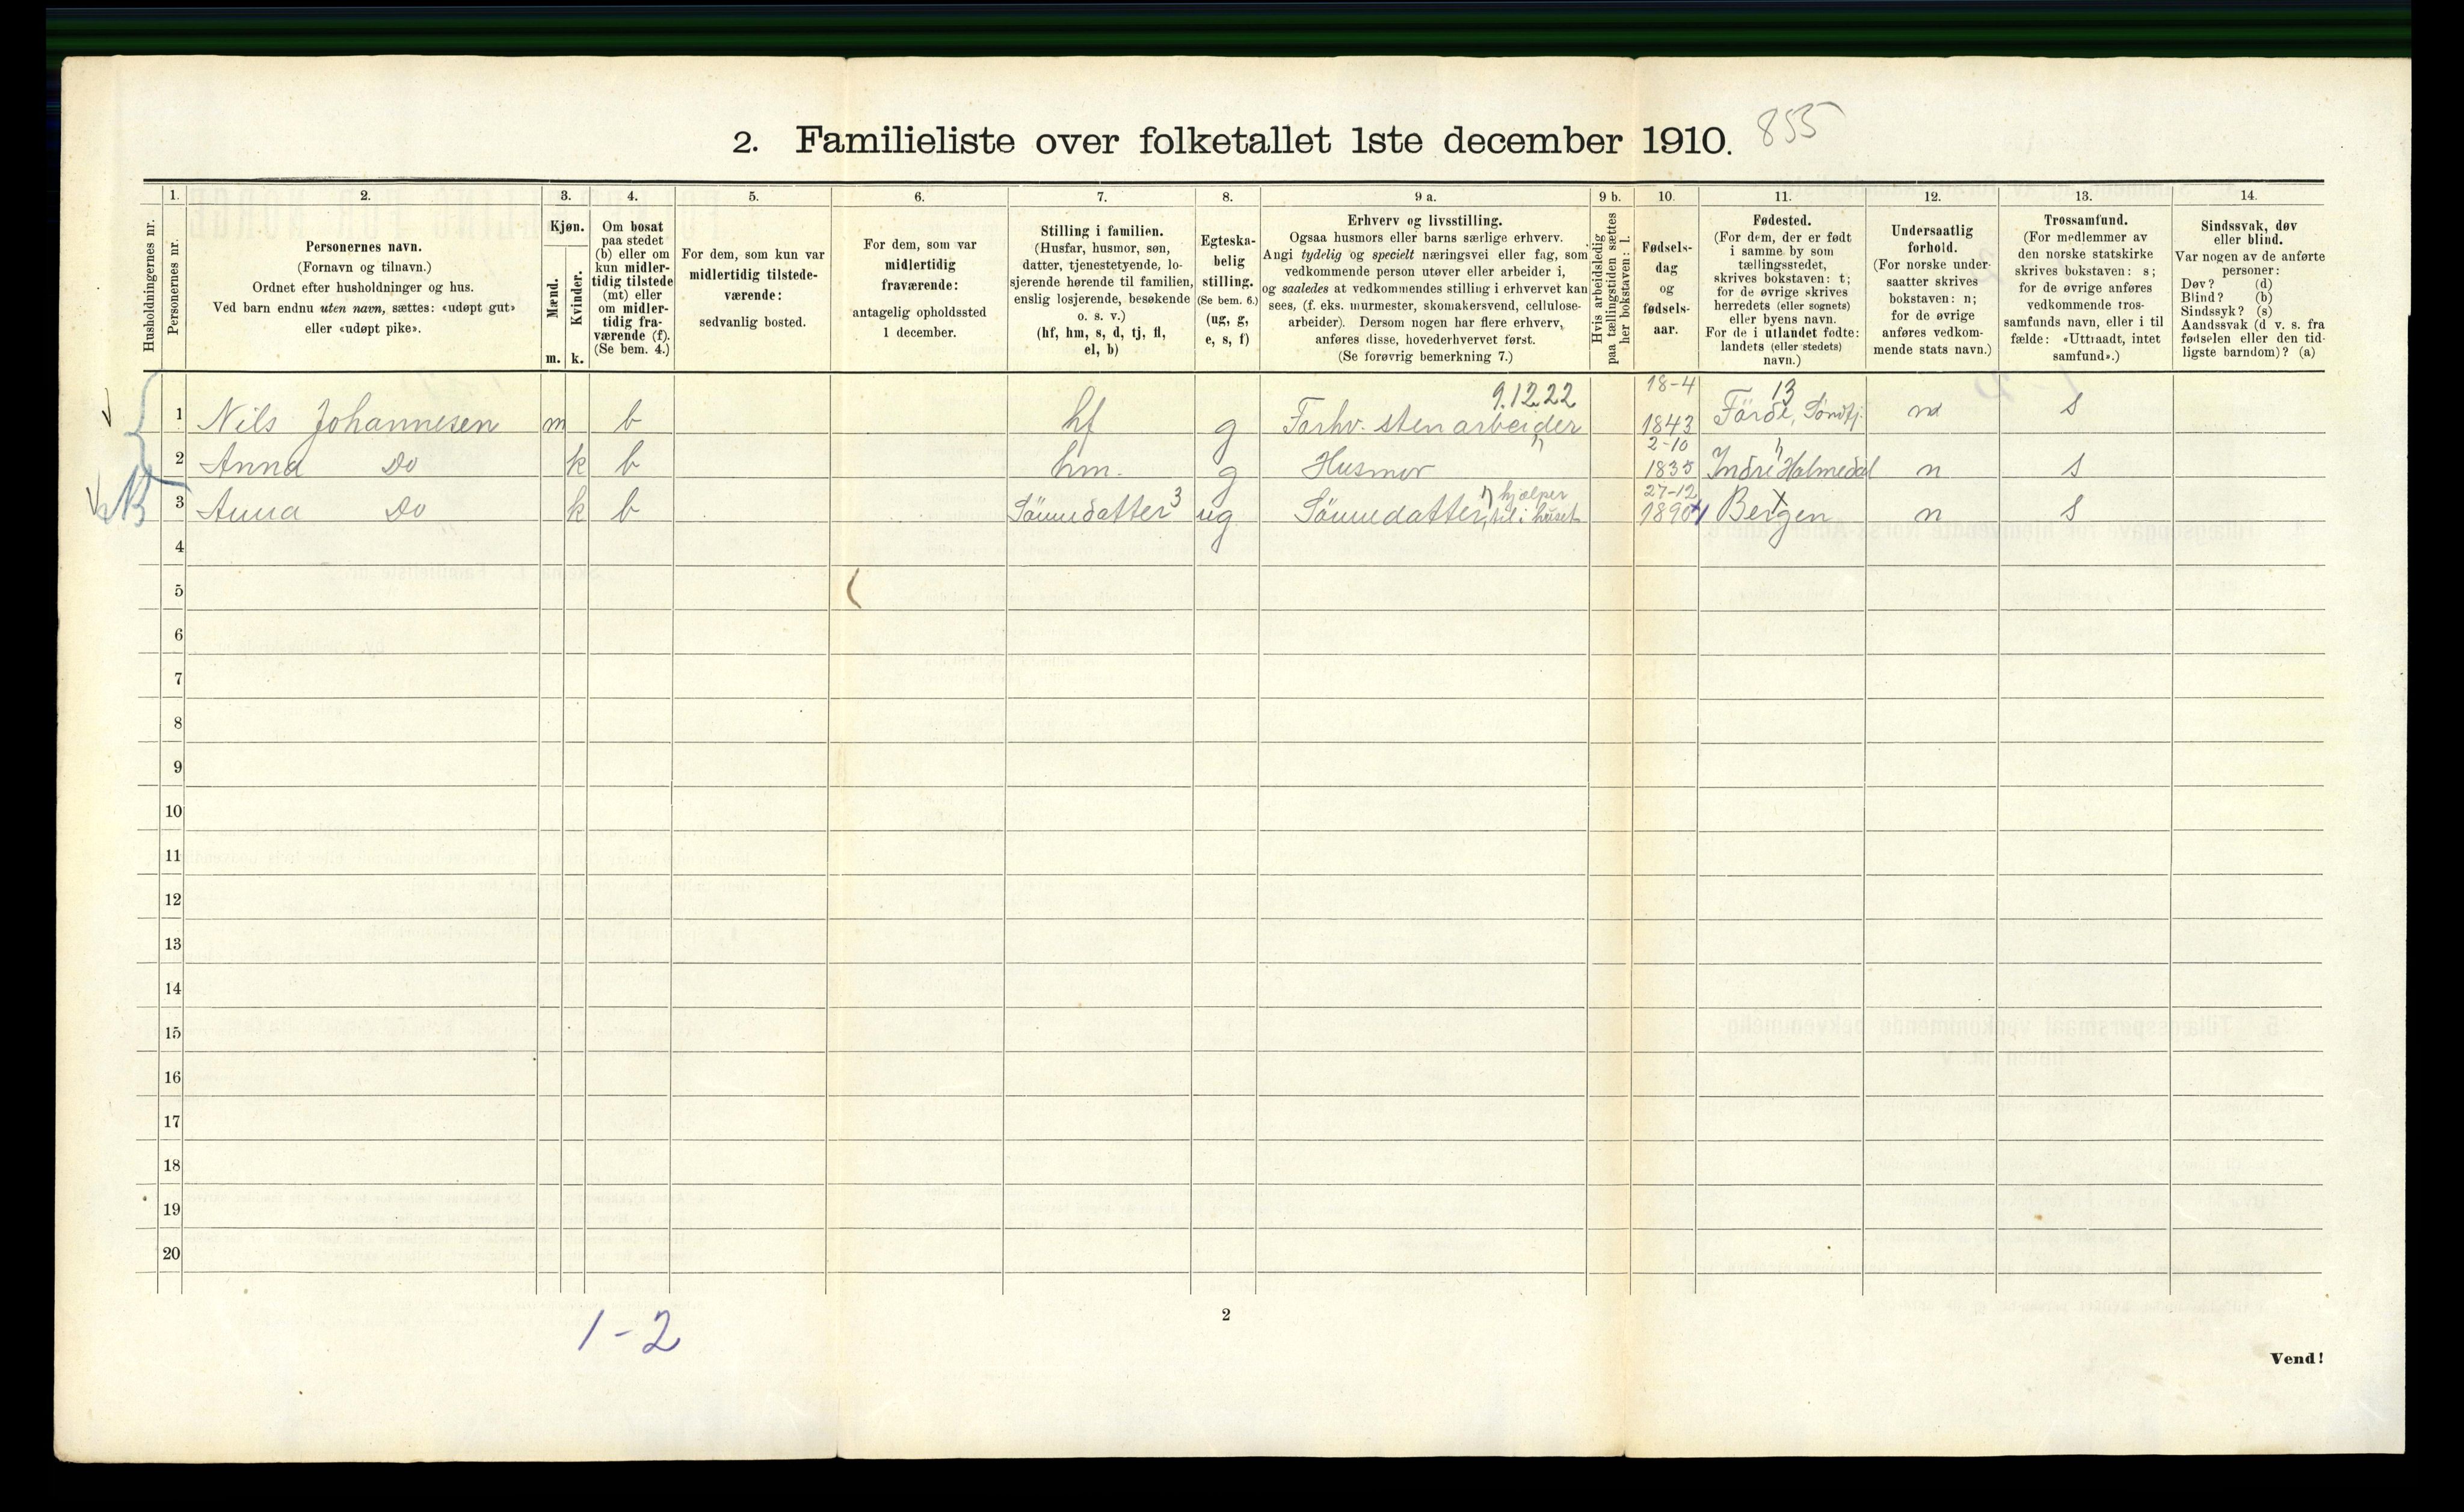 2. Familieliste over folketallet 1ste december 1910. 855
1. 2. 3. 4. 5. 6. 7. 8. 9 a. 9 b. 10. 11. 12. 13. 14.
Husholdningernes nr.
Personernes nr.
Personernes navn.
(Fornavn og tilnavn.)
Ordnet efter husholdninger og hus.
Ved barn endnu uten navn, sættes: «udøpt gut»
eller «udøpt pike».
Kjøn.
Mænd.
m.
Kvinder.
k.
Om bosat
paa stedet
(b) eller om
kun midler-
tidig tilstede
(mt) eller
om midler-
tidig fra-
værende (f).
(Se bem. 4.)
For dem, som kun var
midlertidig tilstede-
værende:
sedvanlig bosted.
For dem, som var
midlertidig
fraværende:
antagelig opholdssted
1 december.
Stilling i familien.
(Husfar, husmor, søn,
datter, tjenestetyende, lo-
sjerende hørende til familien,
enslig losjerende, besøkende
o. s. v.)
(hf, hm, s, d, tj, fl,
el, b)
Egteska-
belig
stilling.
(Se bem. 6.)
(ug, g,
e, s, f)
Erhverv og livsstilling.
Ogsaa husmors eller barns særlige erhverv.
Angi tydelig og specielt næringsvei eller fag, som
vedkommende person utøver eller arbeider i,
og saaledes at vedkommendes stilling i erhvervet kan
sees, (f. eks. murmester, skomakersvend, cellulose-
arbeider). Dersom nogen har flere erhverv,
anføres disse, hovederhvervet først.
(Se forøvrig bemerkning 7.)
Hvis arbeidsledig
paa tællingstiden sættes
her bokstaven: l.
Fødsels-
dag
og
fødsels-
aar.
Fødested.
(For dem, der er født
i samme by som
tællingsstedet,
skrives bokstaven: t;
for de øvrige skrives
herredets (eller sognets)
eller byens navn.
For de i utlandet fødte:
landets (eller stedets)
navn.)
Undersaatlig
forhold.
(For norske under-
saatter skrives
bokstaven: n;
for de øvrige
anføres vedkom-
mende stats navn.)
Trossamfund.
(For medlemmer av
den norske statskirke
skrives bokstaven: s;
for de øvrige anføres
vedkommende tros-
samfunds navn, eller i til
fælde: «Uttraadt, intet
samfund».)
Sindssvak, døv
eller blind.
Var nogen av de anførte
personer:
Døv? (d)
Blind? (b)
Sindssyk? (s)
Aandssvak (d v. s. fra
fødselen eller den tid-
ligste barndom)? (a)
9.12.22 18-4 13
1 Nils Johannesen m b hf g Forhv. stenarbeider 1843 Förde, Söndfj. n s
2-10
2 Anna Do k b hm. g Husmor 1835 Indre Holmedal n s
hjælper 27-12
3 Anna Do k b Sönnedatter 3 ug Sönnedatter, til i huset 1890 Bergen n s
4
5
6
7
8
9
10
11
12
13
14
15
16
17
18
19
20
1-2
2
Vend!